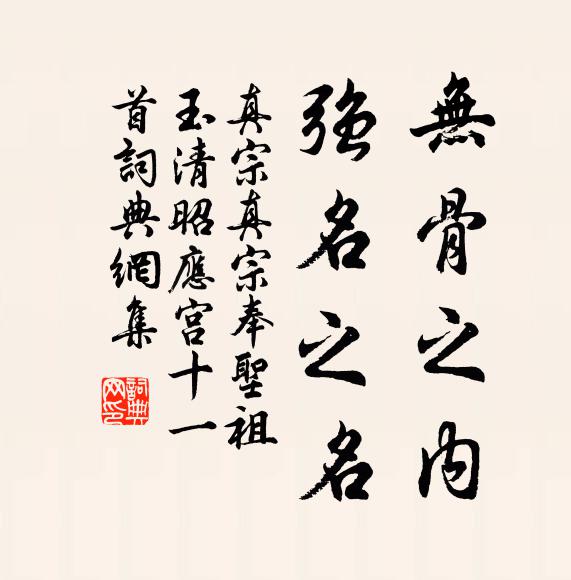 無骨之内
強名之名
真宗真宗奉聖祖
玉清昭應宮十一
首詞典網集
詞典网印